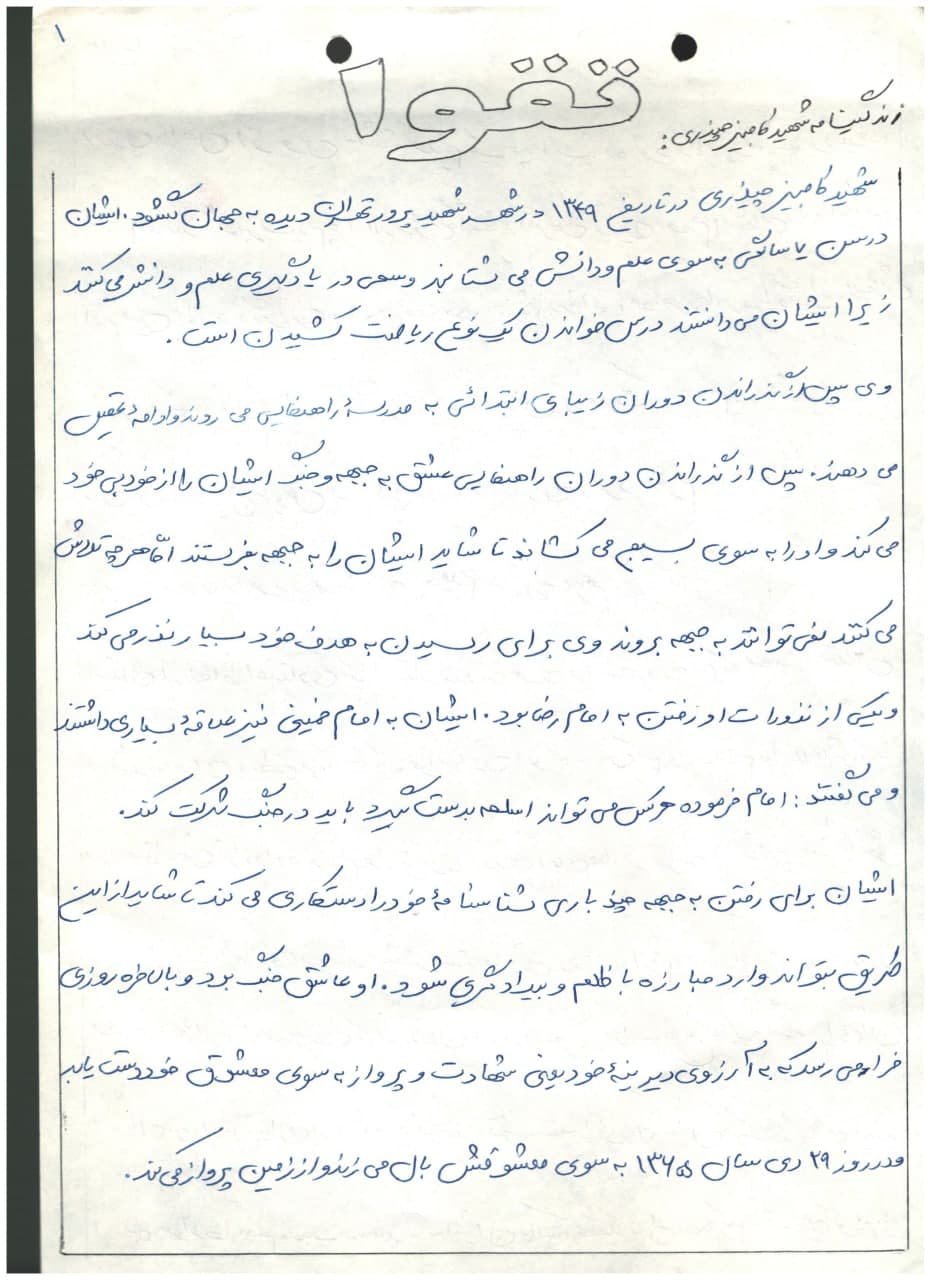 ۱
تقوا
زندگینامه شهید کامبیز چیذری:
شهید کامبیز چیذری در تاریخ ۱۳۴۹ در شهر شهید پرور تهران دیده به جهان گشود. ایشان
در سن ۷ سالگی به سوی علم و دانش می شتابند و سعی در یادگیری علم و دانش می کنند
زیرا ایشان می دانستند درس خواندن یک نوع ریاضت کشیدن است.
وی پس از گذراندن دوران زیبای ابتدائی به مدرسهٔ راهنمایی می روند و ادامهٔ تحصیل
می دهند. پس از گذراندن دوران راهنمایی عشق به جبهه و جنگ ایشان را از خود بی خود
می کند و او را به سوی بسیج می کشاند تا شاید ایشان را به جبهه بفرستند امّا هر چه تلاش
می کنند نمی توانند به جبهه بروند وی برای رسیدن به هدف خود بسیار نذر می کند
و یکی از نذورات او رفتن به امام رضا بود. ایشان به امام خمینی نیز علاقهٔ بسیاری داشتند
و می گفتند: امام فرموده هر کس می تواند اسلحه بدست گیرد باید در جنگ شرکت کند.
ایشان برای رفتن به جبهه چند باری شناسنامهٔ خود را دستکاری می کند تا شاید از این
طریق بتواند وارد مبارزه با ظلم و بیدادگری شود. او عاشق جنگ بود و بالاخره روزی
فرا می رسد که به آرزوی دیرینهٔ خود یعنی شهادت و پرواز به سوی معشوق خود دست یابد
و در روز ۲۹ دی سال ۱۳۶۵ به سوی معشوقش بال می زند و از زمین پرواز می کند.